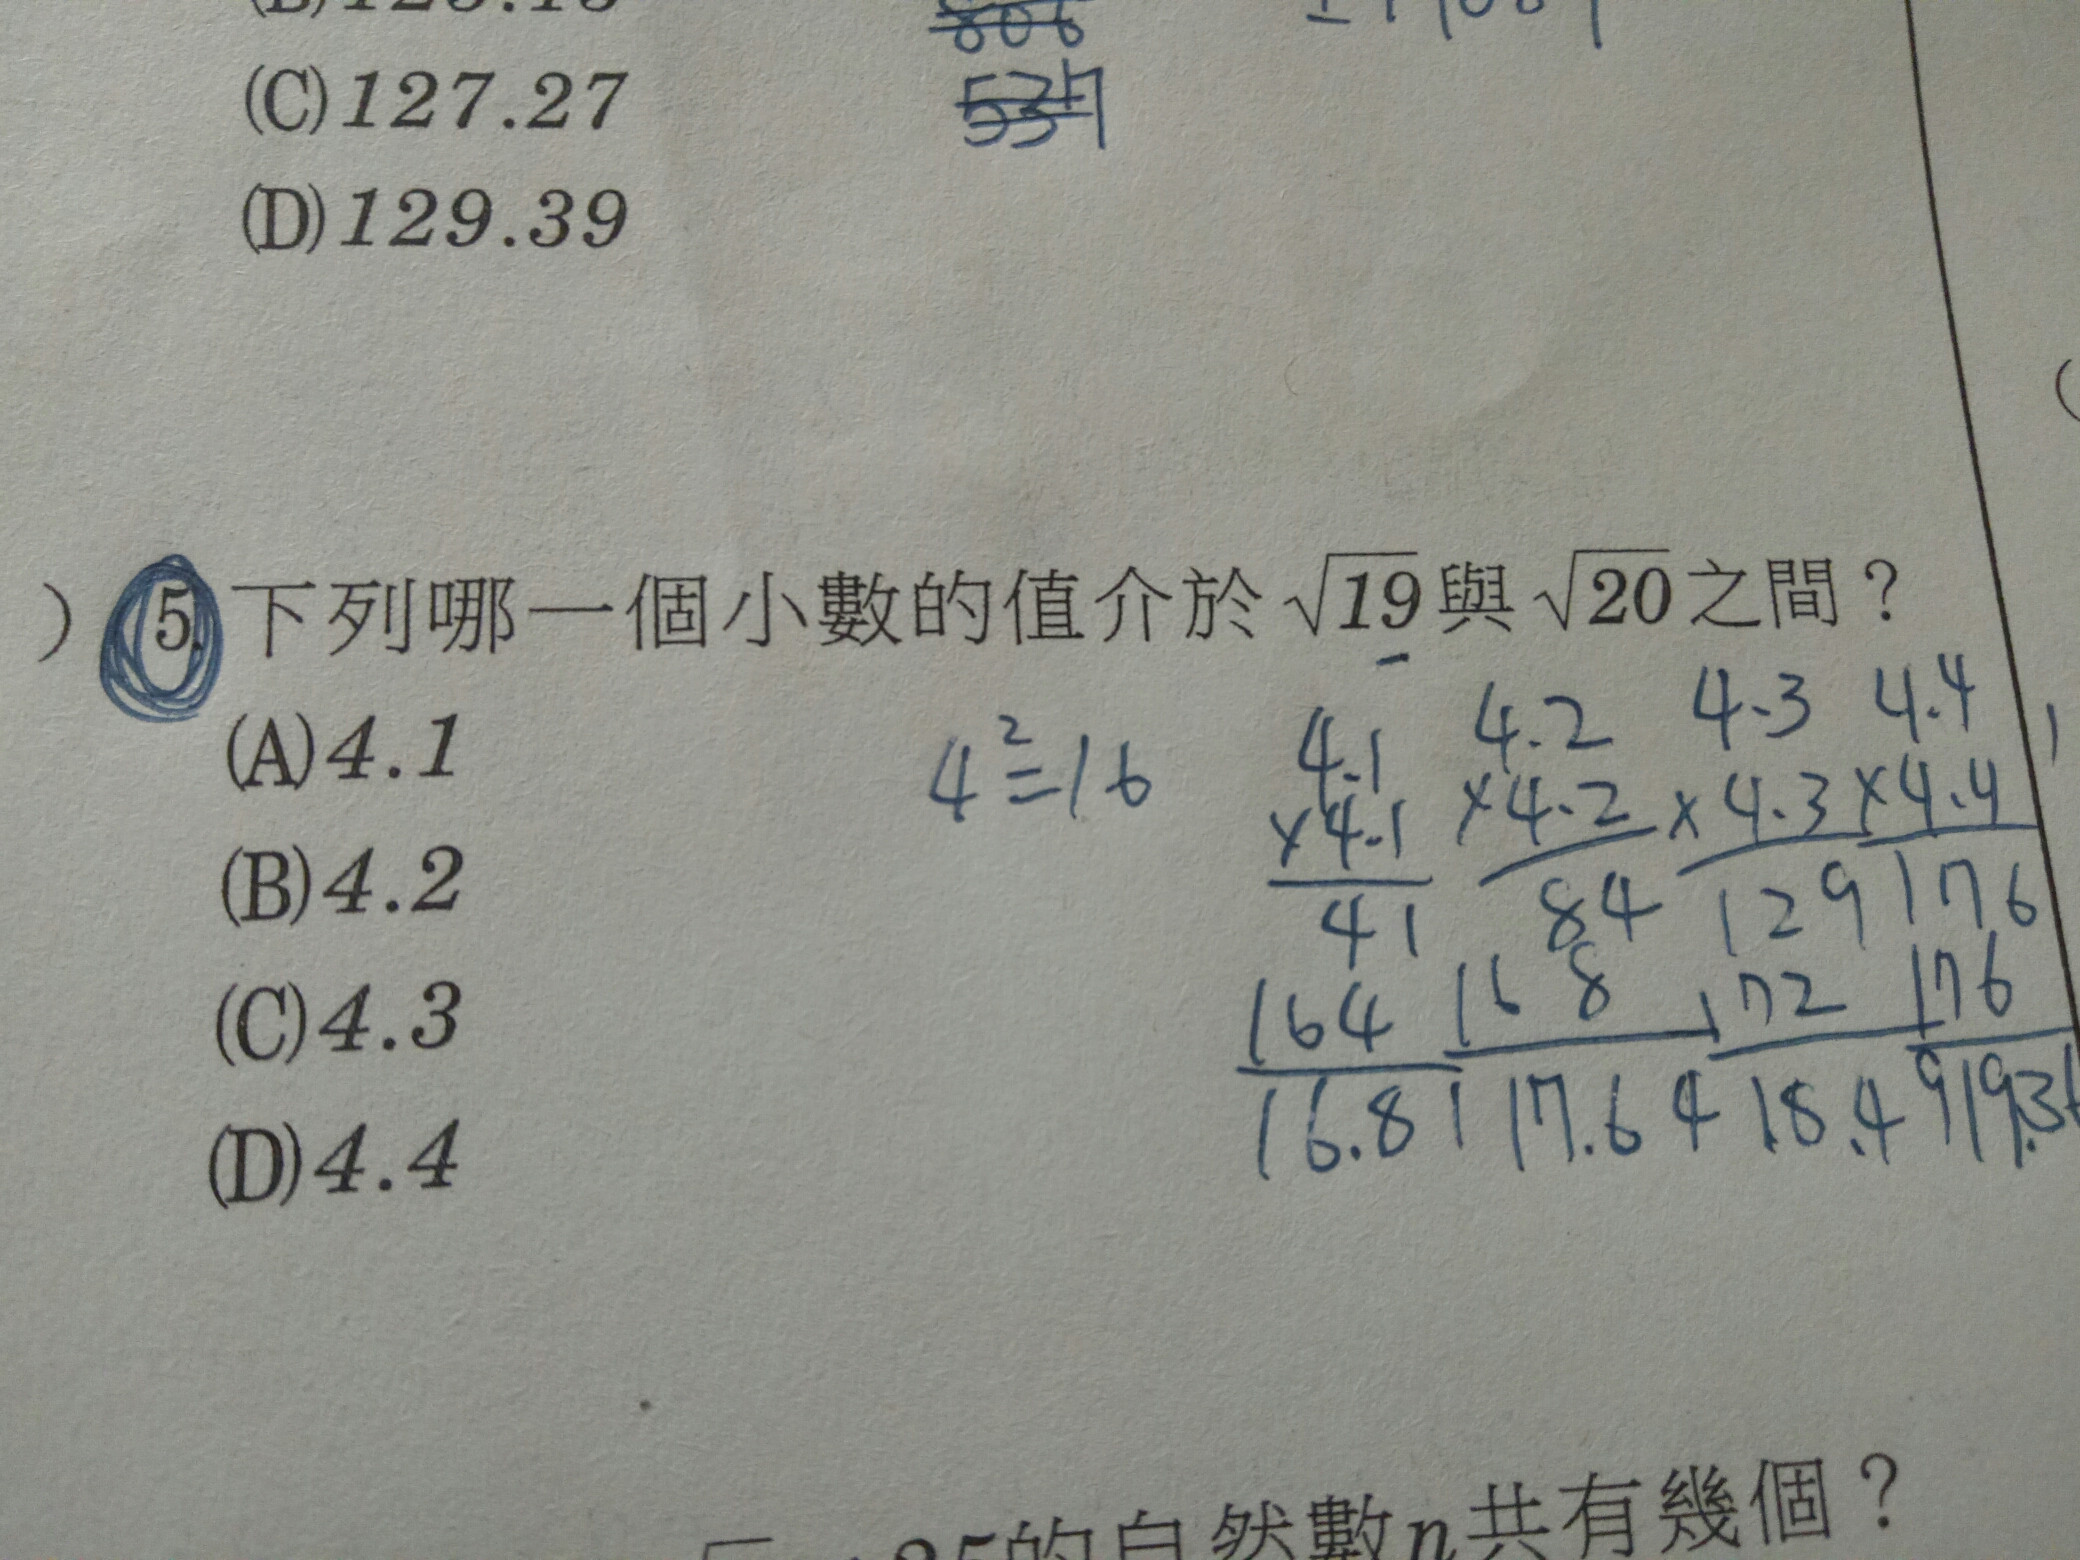 (C)127.27
537
(D)129.39
5.下列哪一個小數的值介於√19與√20之間？
(A)4.1
(B)4.2
(C)4.3
(D)4.4
4²=16
4.1 4.2 4.3 4.4
×4.1 ×4.2 ×4.3 ×4.4
41 84 129 176
164 168 172 176
16.81 17.64 18.49 19.36
的自然數n共有幾個？